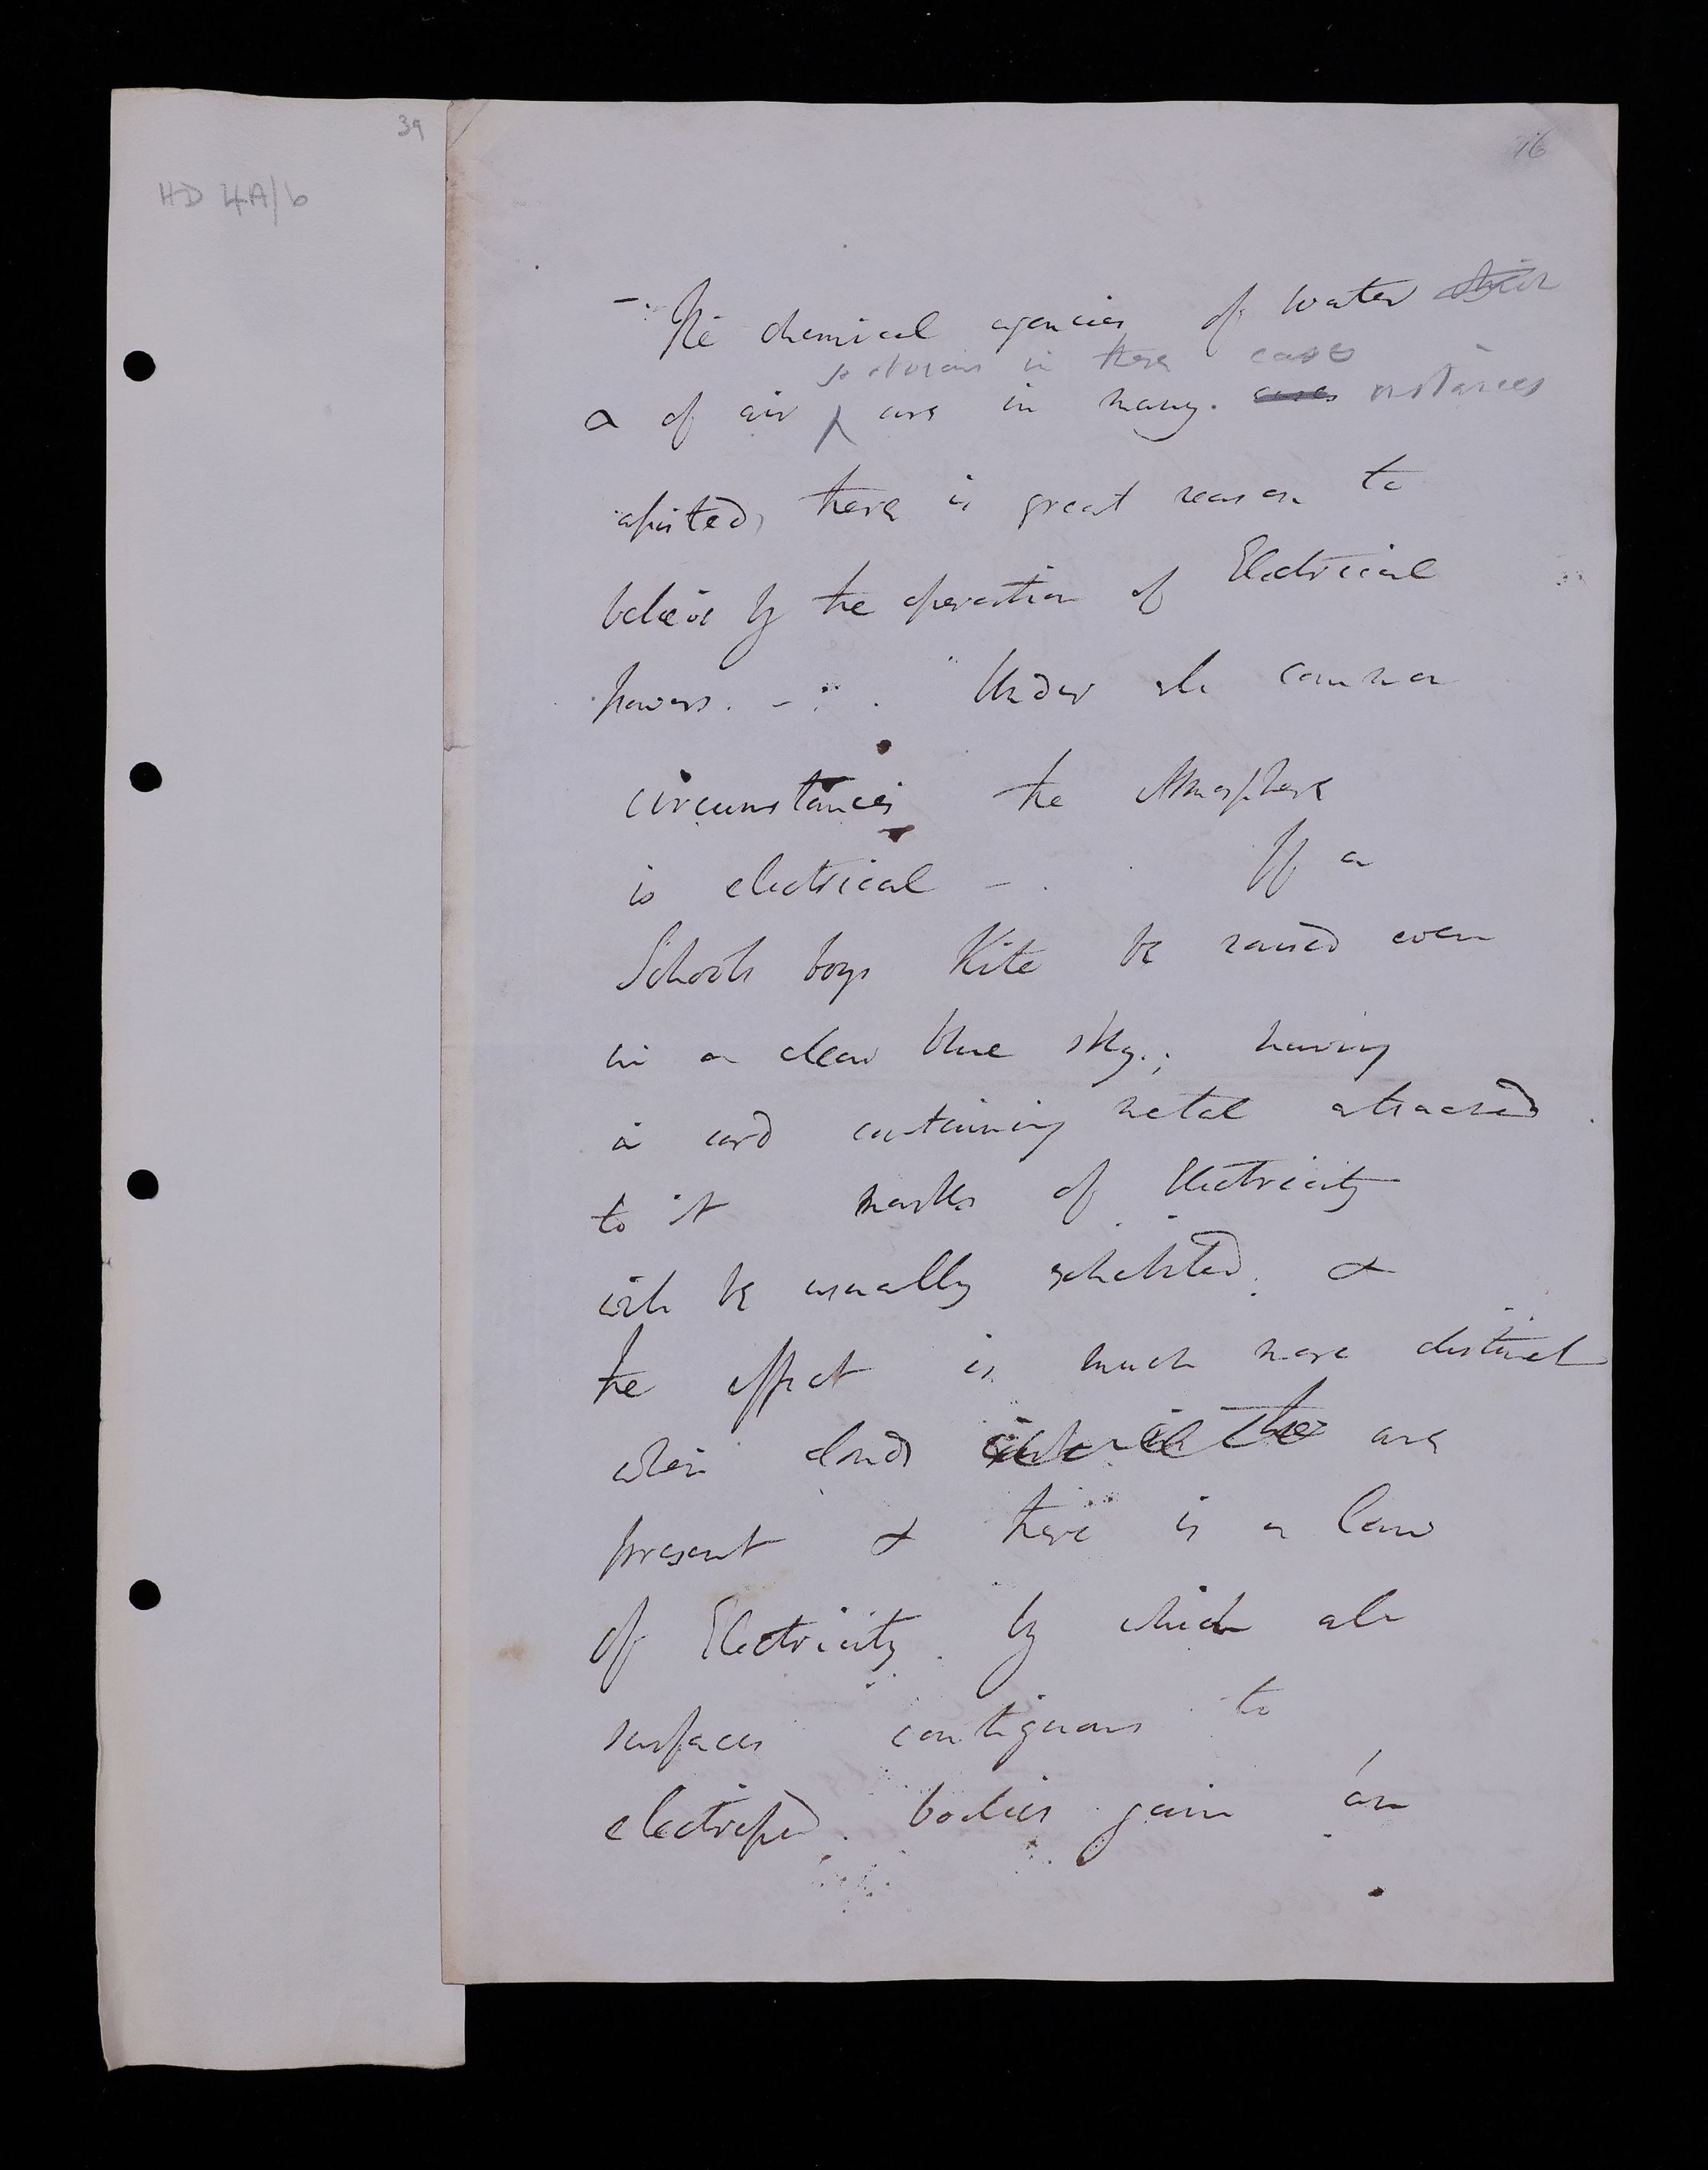 39
HD 4A/6
76
- The chemical agencies of water which
so obvious in these cases
& of air are in many cases instances
assisted, there is great reason to
believe by the operation of Electrical
powers. - . Under all common
circumstances the Atmosphere
is electrical - . If a
Schools boys Kite be raised even
in a clear blue sky; having
a cord containing metal attached
to it marks of Electricity
will be usually exhibited. &
the effect is much more distinct
when clouds are
present & there is a law
of Electricity by which all
surfaces contiguous to
electrified bodies gain an